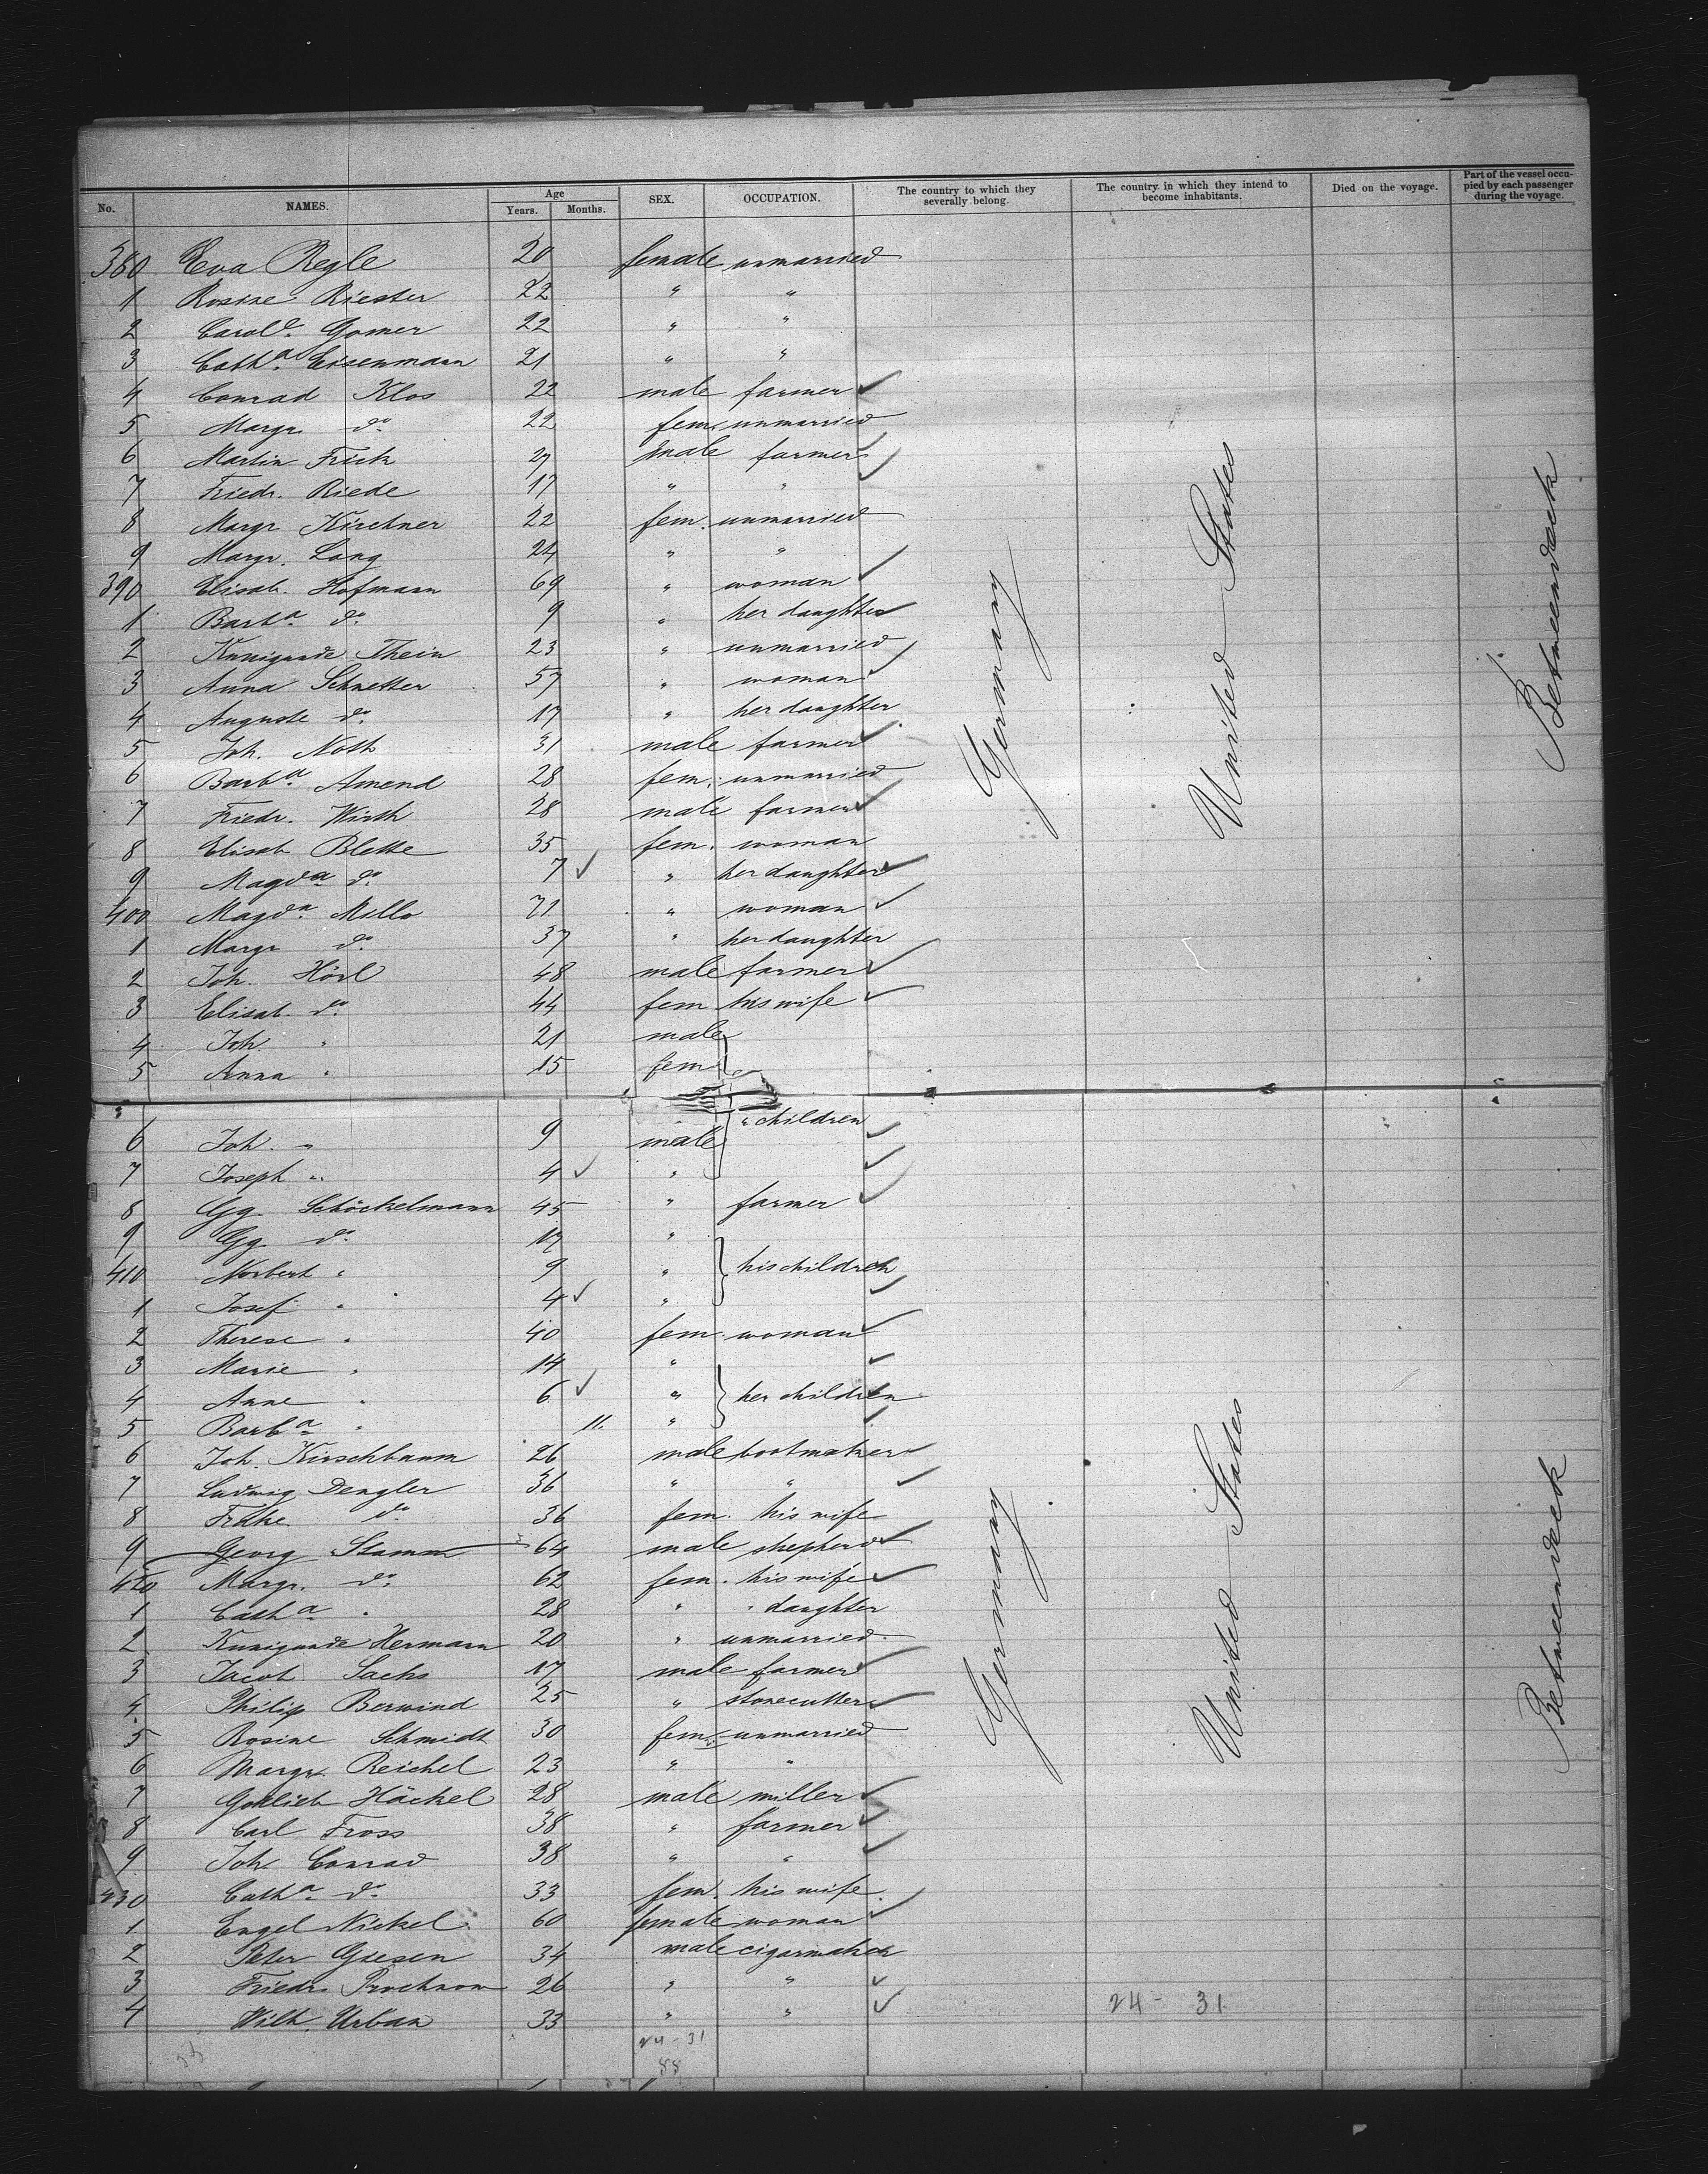 No. NAMES. Age Years. Months. SEX. OCCUPATION. The country to which they severally belong. The country in which they intend to become inhabitants. Died on the voyage. Part of the vessel occupied by each passenger during the voyage.
380 Eva Regle 20 female unmarried
1 Rosine Riester 22 " "
2 Carole. Gomer 22 " "
3 Catha. Eisenmann 21 " "
4 Conrad Klos 22 male farmer
5 Margr. do. 22 fem. unmarried
6 Martin Frick 27 male farmer
7 Friedr. Riede 17 " "
8 Margr. Kirchner 22 fem. unmarried
9 Margr. Lang 24 " "
390 Elisab. Hofmann 69 " woman
1 Barba. do. 9 " her daughter
2 Kunigunde Thein 23 " unmarried
3 Anna Schnetter 57 " woman
4 Auguste do. 17 " her daughter
5 Joh. Noth 31 male farmer
6 Barba. Amend 28 fem. unmarried
7 Friedr. Wirth 28 male farmer
8 Elisab Blette 35 fem. woman
9 Magda. do. 7 " her daughter
400 Magda. Millo 71 " woman
1 Margr do. 37 " her daughter
2 Joh. Hörl 48 male farmer
3 Elisab. do. 44 fem his wife
4 Joh. " 21 male
5 Anna " 15 fem
6 Joh. " 9 male " children
7 Joseph " 4 "
8 Gg. Schöckelmann 45 " farmer
9 Gg. do. 17 "
410 Norbert " 9 " his children
1 Josef " 4 "
2 Therese " 40 fem. woman
3 Marie " 14 "
4 Anne " 6 " her children
5 Barba. " 11. "
6 Joh. Kirschbaum 26 male bootmaker
7 Ludwig Dengler 36 " "
8 Frdke. do. 36 fem. his wife
9 Georg Stamm 64 male shepherd
420 Margr. do. 62 fem. his wife
1 Catha " 28 " " daughter
2 Kunigunde Hermann 20 " unmarried
3 Jacob Sachs 17 male farmer
4 Philip Berwind 25 " stonecutter
5 Rosine Schmidt 30 fem. unmarried
6 Margr. Reichel 23 " "
7 Gottlieb Häckel 28 male miller
8 Carl Fross 38 " farmer
9 Joh. Conrad 38 " "
430 Catha. do. 33 fem. his wife
1 Engel Nickel 60 female woman
2 Peter Giesen 34 male cigarmaker
3 Friedr. 26 " "
4 Wilh. Urban 33 " "
Germany
United States
Betweendeck
Germany
United States
Betweendeck
24 - 31
24 - 31
88